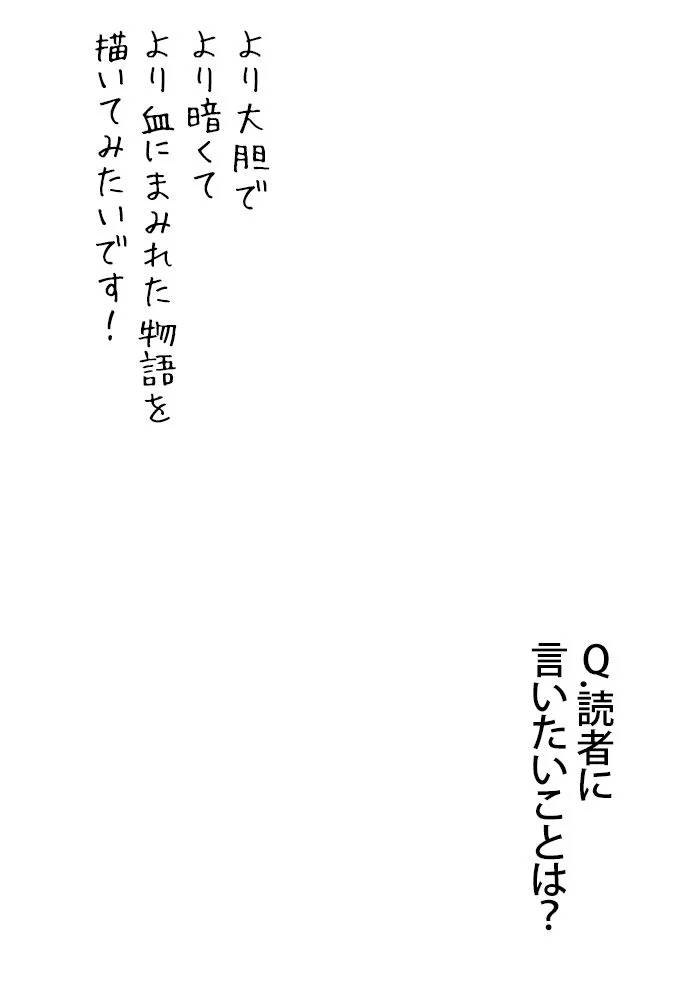 より大胆で
より暗くて
より血にまみれた物語を
描いてみたいです！
Q.読者に
言いたいことは？